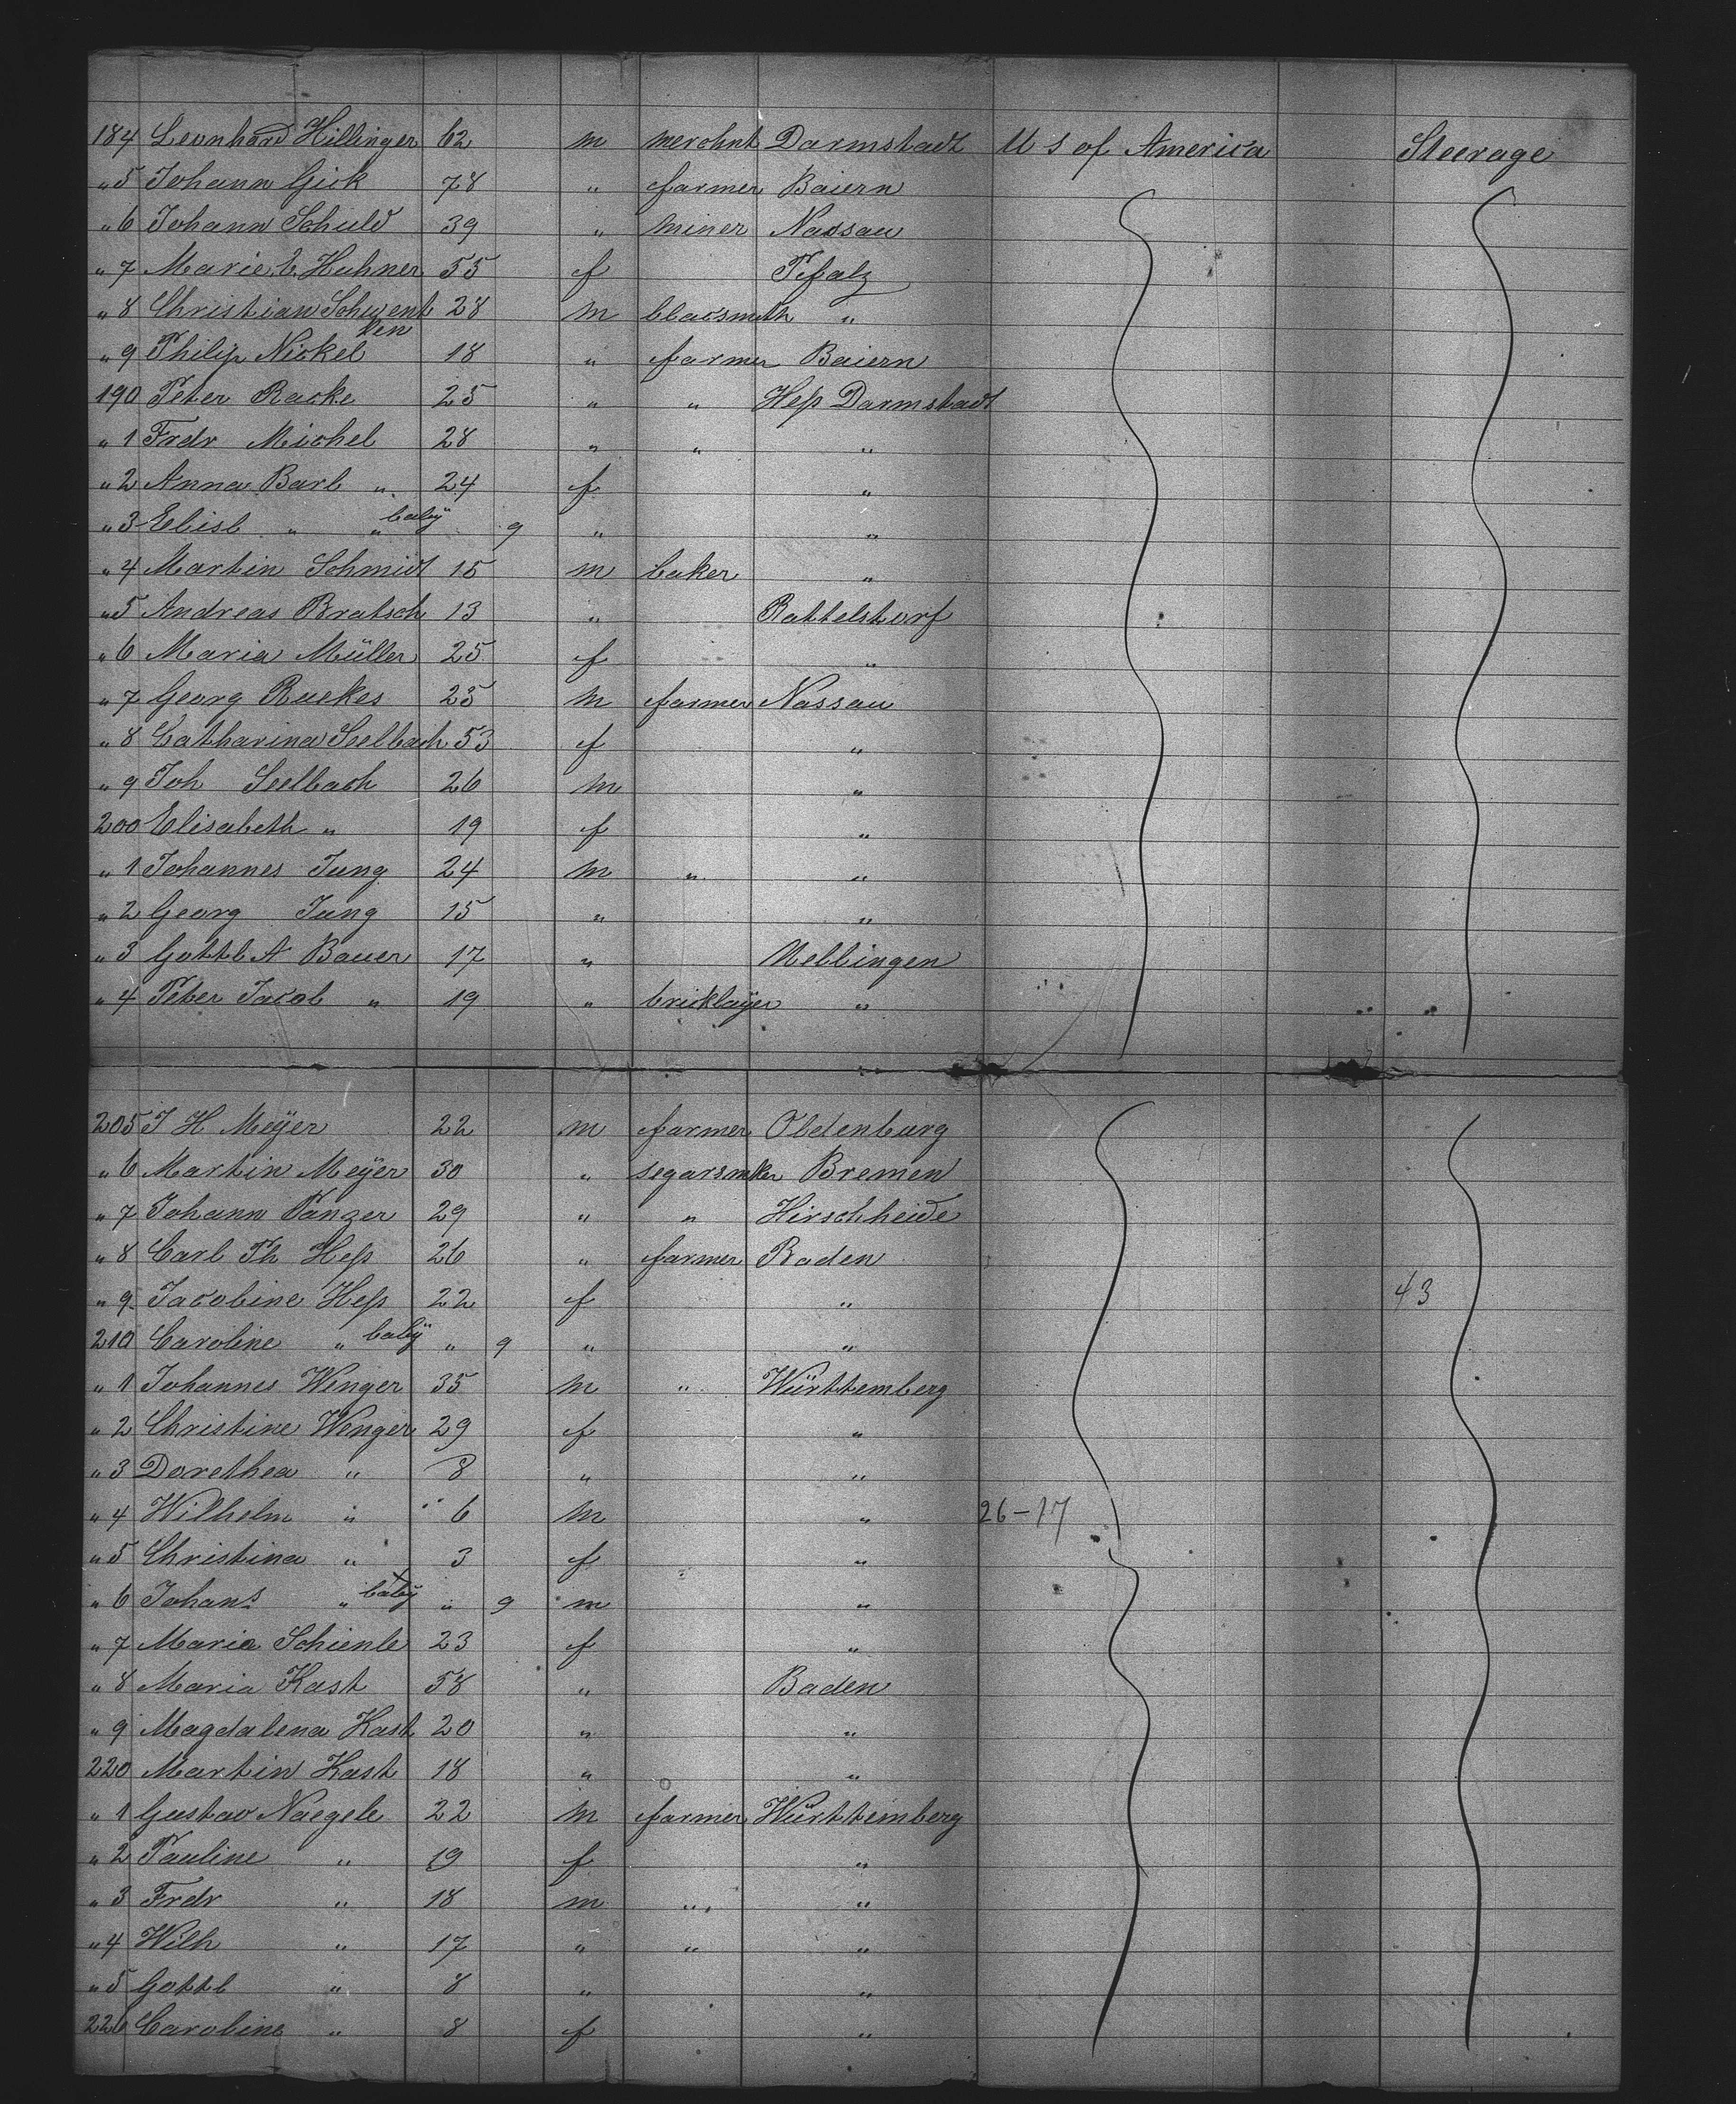 184 Leonhard Hillinger 62 m merchnt Darmstadt U S of America Steerage
" 5 Johann Gick 78 " farmer Baiern
" 6 Johann Schuld 39 " miner Nassau
" 7 Marie E. Huhner 55 f Pfalz
" 8 Christian Schwenk 28 m blacsmith "
ken
" 9 Philip Nickel 18 " farmer Baiern
190 Peter Racke 25 " " Heß Darmstadt
" 1 Frdr Michel 28 " " "
" 2 Anna Barb " 24 f "
" 3 Elisb " " baby 9 " "
" 4 Martin Schmidt 15 m baker "
" 5 Andreas Bratsch 13 " Rattelstorf
" 6 Maria Müller 25 f "
" 7 Georg Ruckes 25 m farmer Nassau
" 8 Catharina Seelbach 53 f "
" 9 Joh Seelbach 26 m "
200 Elisabeth " 19 f "
" 1 Johannes Jung 24 m " "
" 2 Georg Jung 15 " "
" 3 Gottl A Bauer 17 " Mellingen
" 4 Peter Jacob " 19 " bricklayer "
205 J H Meÿer 22 m farmer Oldenburg
" 6 Martin Meÿer 30 " segarsmker Bremen
" 7 Johann Panzer 29 " " Hirschheide
" 8 Carl Th Heß 26 " farmer Baden
" 9 Jacobine Heß 22 f " 43
210 Caroline " baby " 9 " "
" 1 Johannes Wenger 35 m " Württemberg
" 2 Christine Wenger 29 f "
" 3 Dorethea " 8 " "
" 4 Wilhelm " 6 m " 26-17
" 5 Christina " 3 f "
" 6 Johans " baby " 9 m "
" 7 Maria Schienle 23 f "
" 8 Maria Kast 58 " Baden
" 9 Magdalena Kast 20 " "
220 Martin Kast 18 " "
" 1 Gustav Naegele 22 m farmer Württemberg
" 2 Pauline " 19 f "
" 3 Frdr " 18 m " "
" 4 Wilh " 17 " " "
" 5 Gottl " 8 " "
226 Caroline " 8 f "